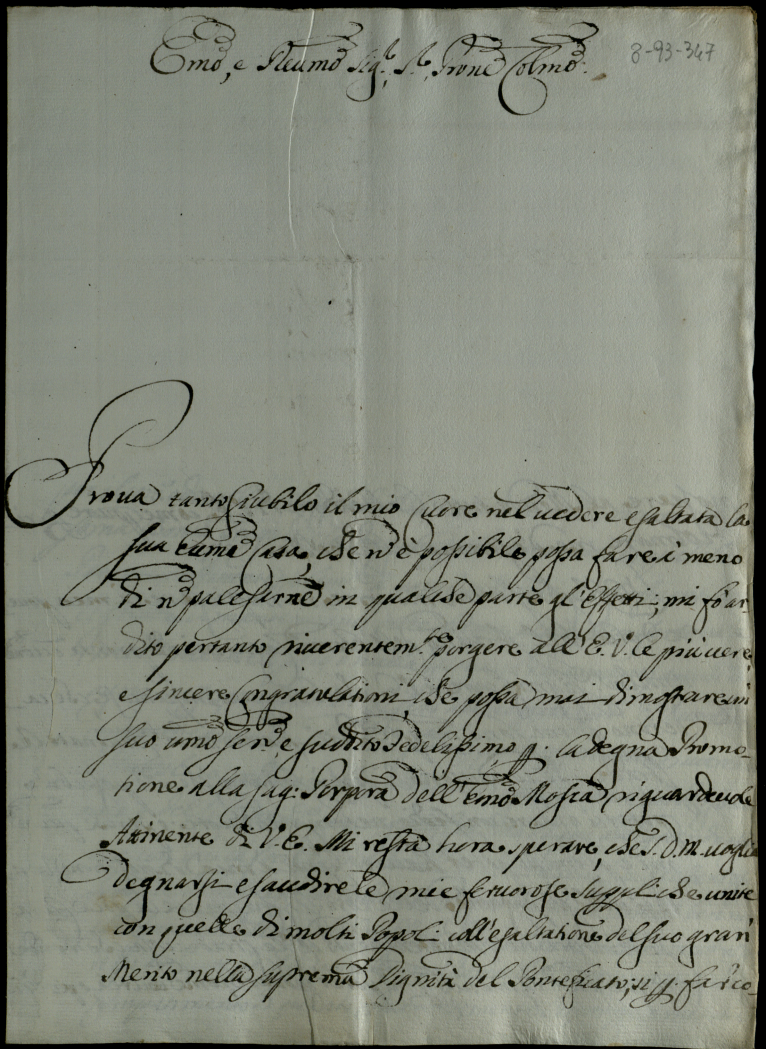 Emo, e Reumo Sig.r, S.r, Prone Colmo:
8-93-347
Proua tanto Giubilo il mio Cuore nel uedere esaltata la
sua Emã Casa, che nõ è possibile possa fare à meno
di nõ palesarne in qualche parte gl'Effetti; mi fò ar-
dito pertanto riuerentem.te porgere all'E. V. le più uere,
e sincere Congratulationi, che possa mai dimostrare un
suo umõ seru.e e suddito Fedelissimo p. la degna Promo-
tione alla Sag: Porpora dell'Emõ Mosca riguardeuole
Attinente di V. E. Mi resta hora sperare, che S. D. M. uoglia
degnarsi esaudire le mie feruorose Suppli: che unite
con quelle di molti Popol: coll'esaltatione del suo gran
Merito nella suprema Dignità del Pontificato, si p. far co-